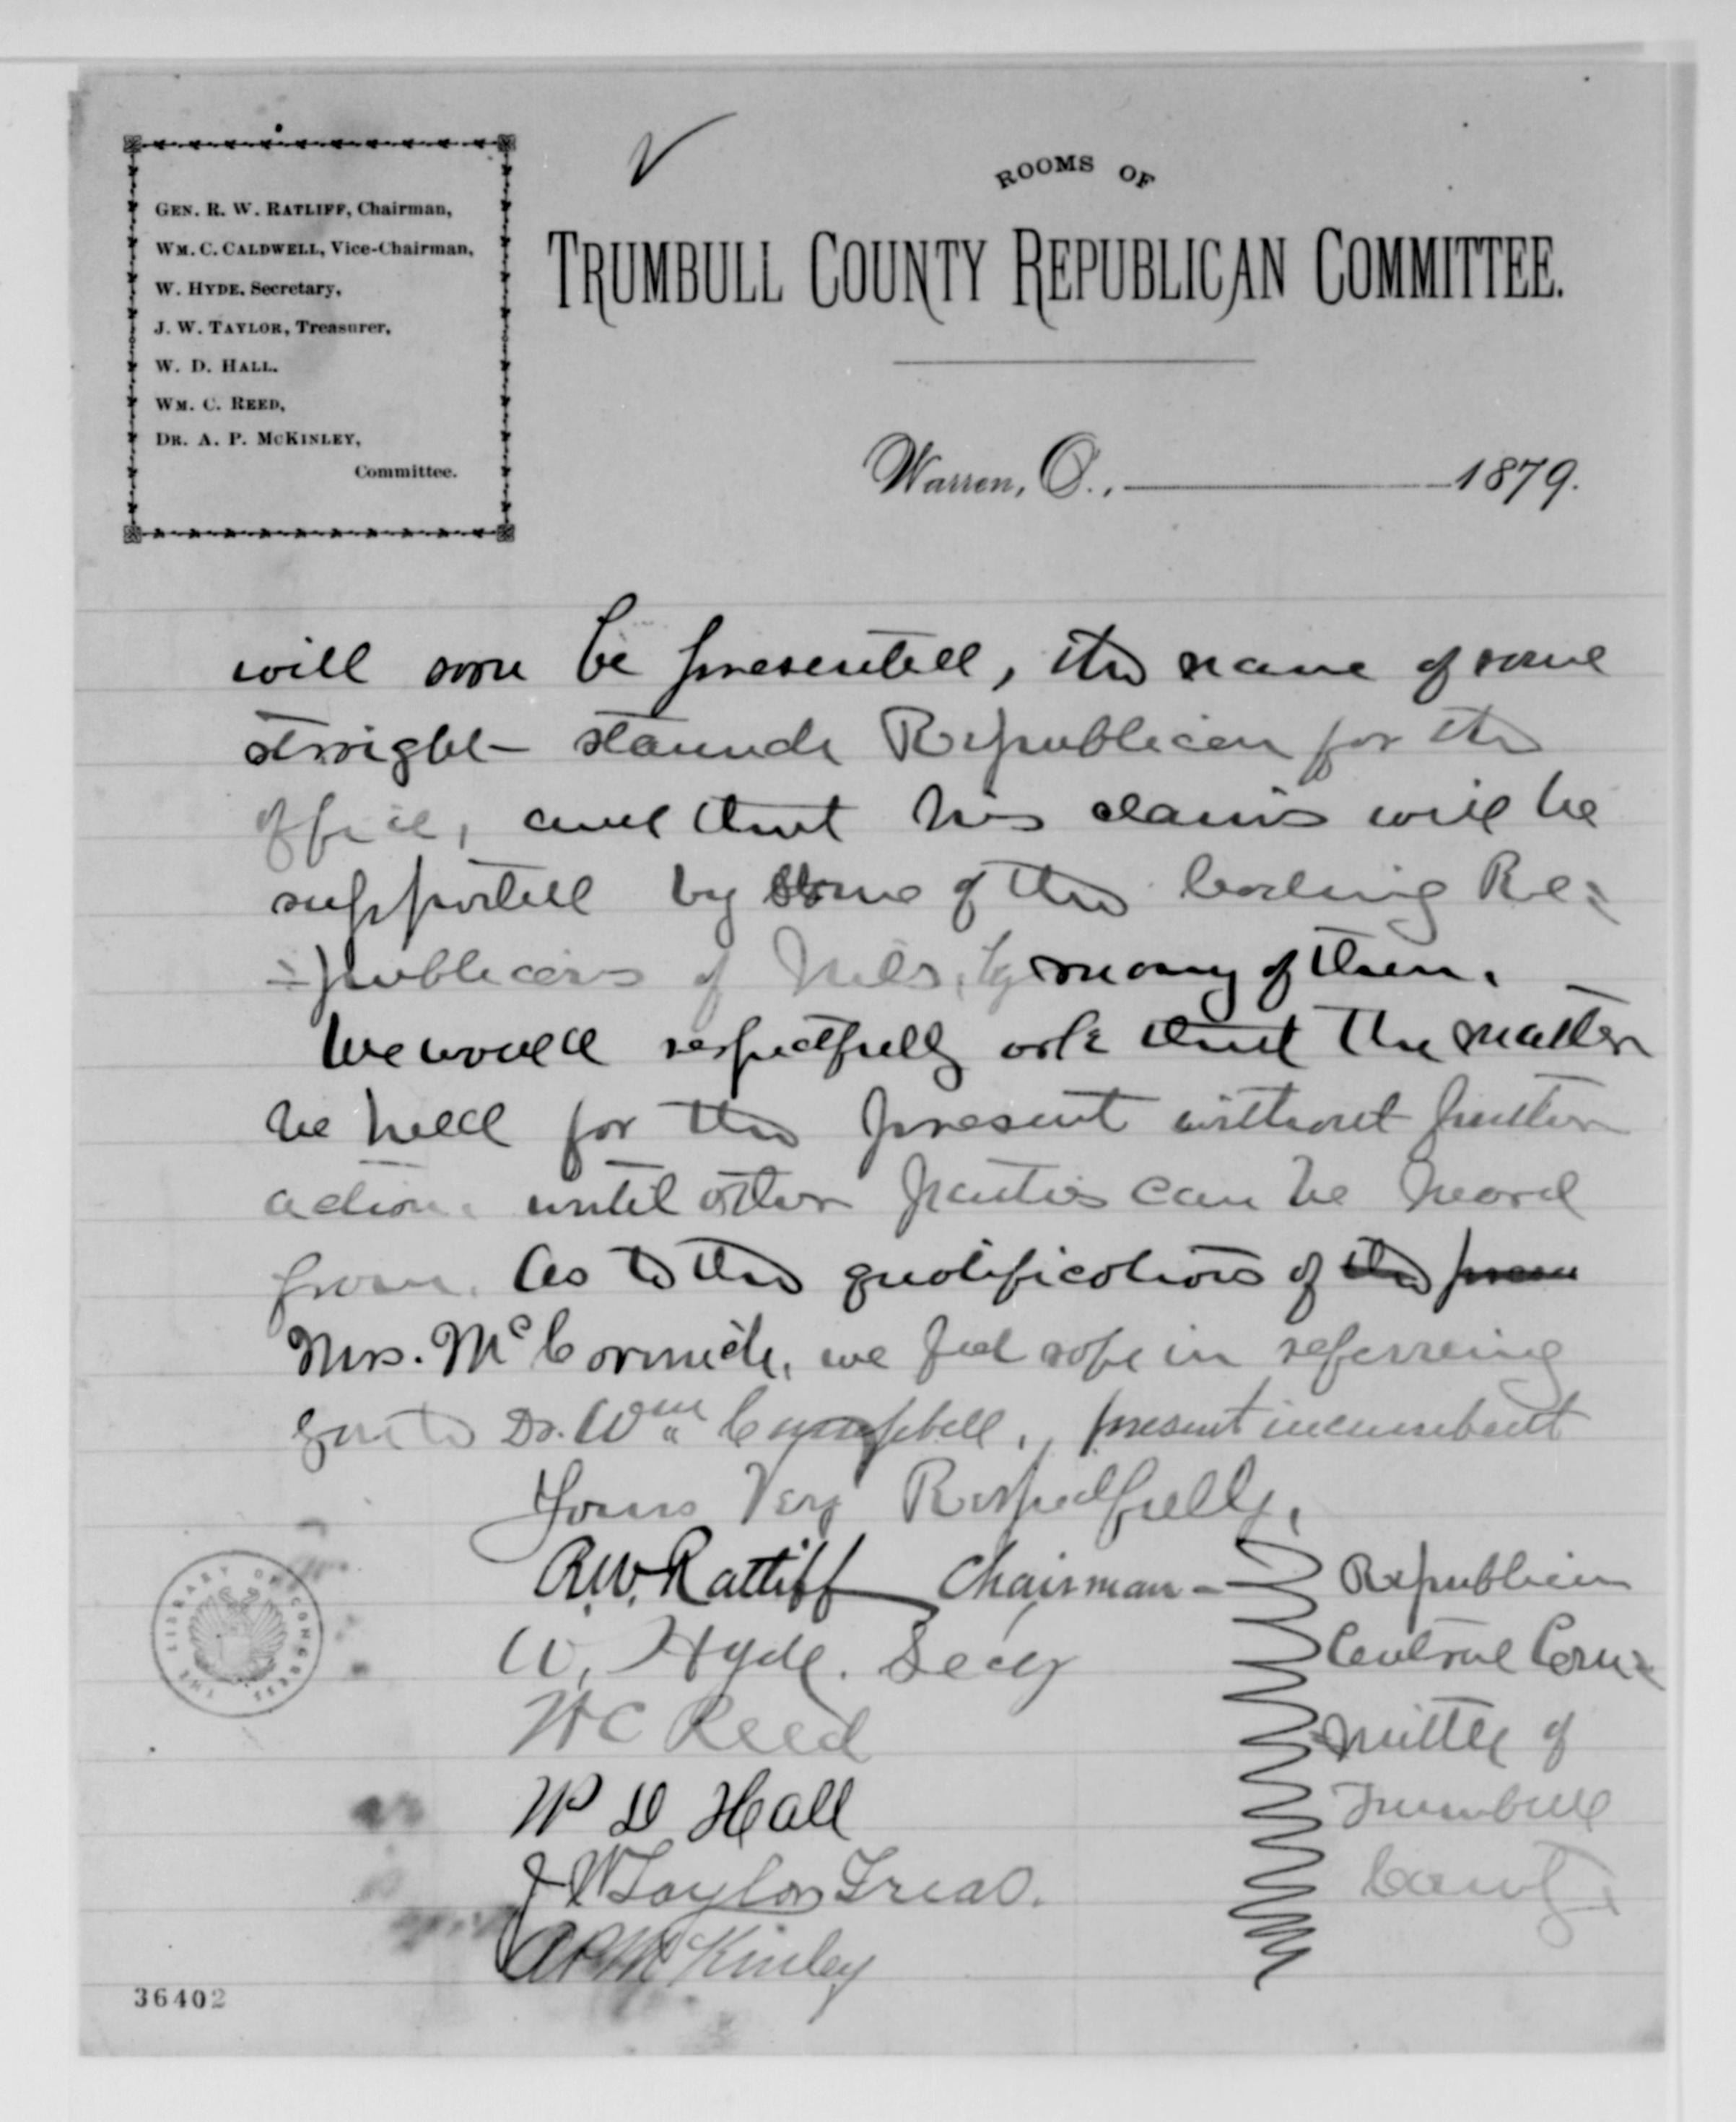 GEN. R. W. RATLIFF, Chairman,
WM. C. CALDWELL, Vice-Chairman,
W. HYDE, Secretary,
J. W. TAYLOR, Treasurer,
W. D. HALL.
WM. C. REED,
DR. A. P. MCKINLEY,
Committee.
ROOMS OF
TRUMBULL COUNTY REPUBLICAN COMMITTEE.
Warren, O., 1879.
will soon be presented, the name of some
straight staunch Republican for the
office, and that his claims will be
supported by some of the leading Re-
-publicans of Niles, by many of them.
We would respectfully ask that the matter
be held for the present without further
action until other parties can be heard
from. As to the qualifications of the
Mrs. McCormick, we feel safe in referring
you to Dr. Wm Campbell, present incumbent
Yours Very Respectfully,
R.W. Ratliff Chairman - Republican
W. Hyde. Secy Central Com-
W C Reed -mittee of
W D Hall Trumbull
J W Taylor Treas. County
A P McKinley
THE LIBRARY OF CONGRESS
36402